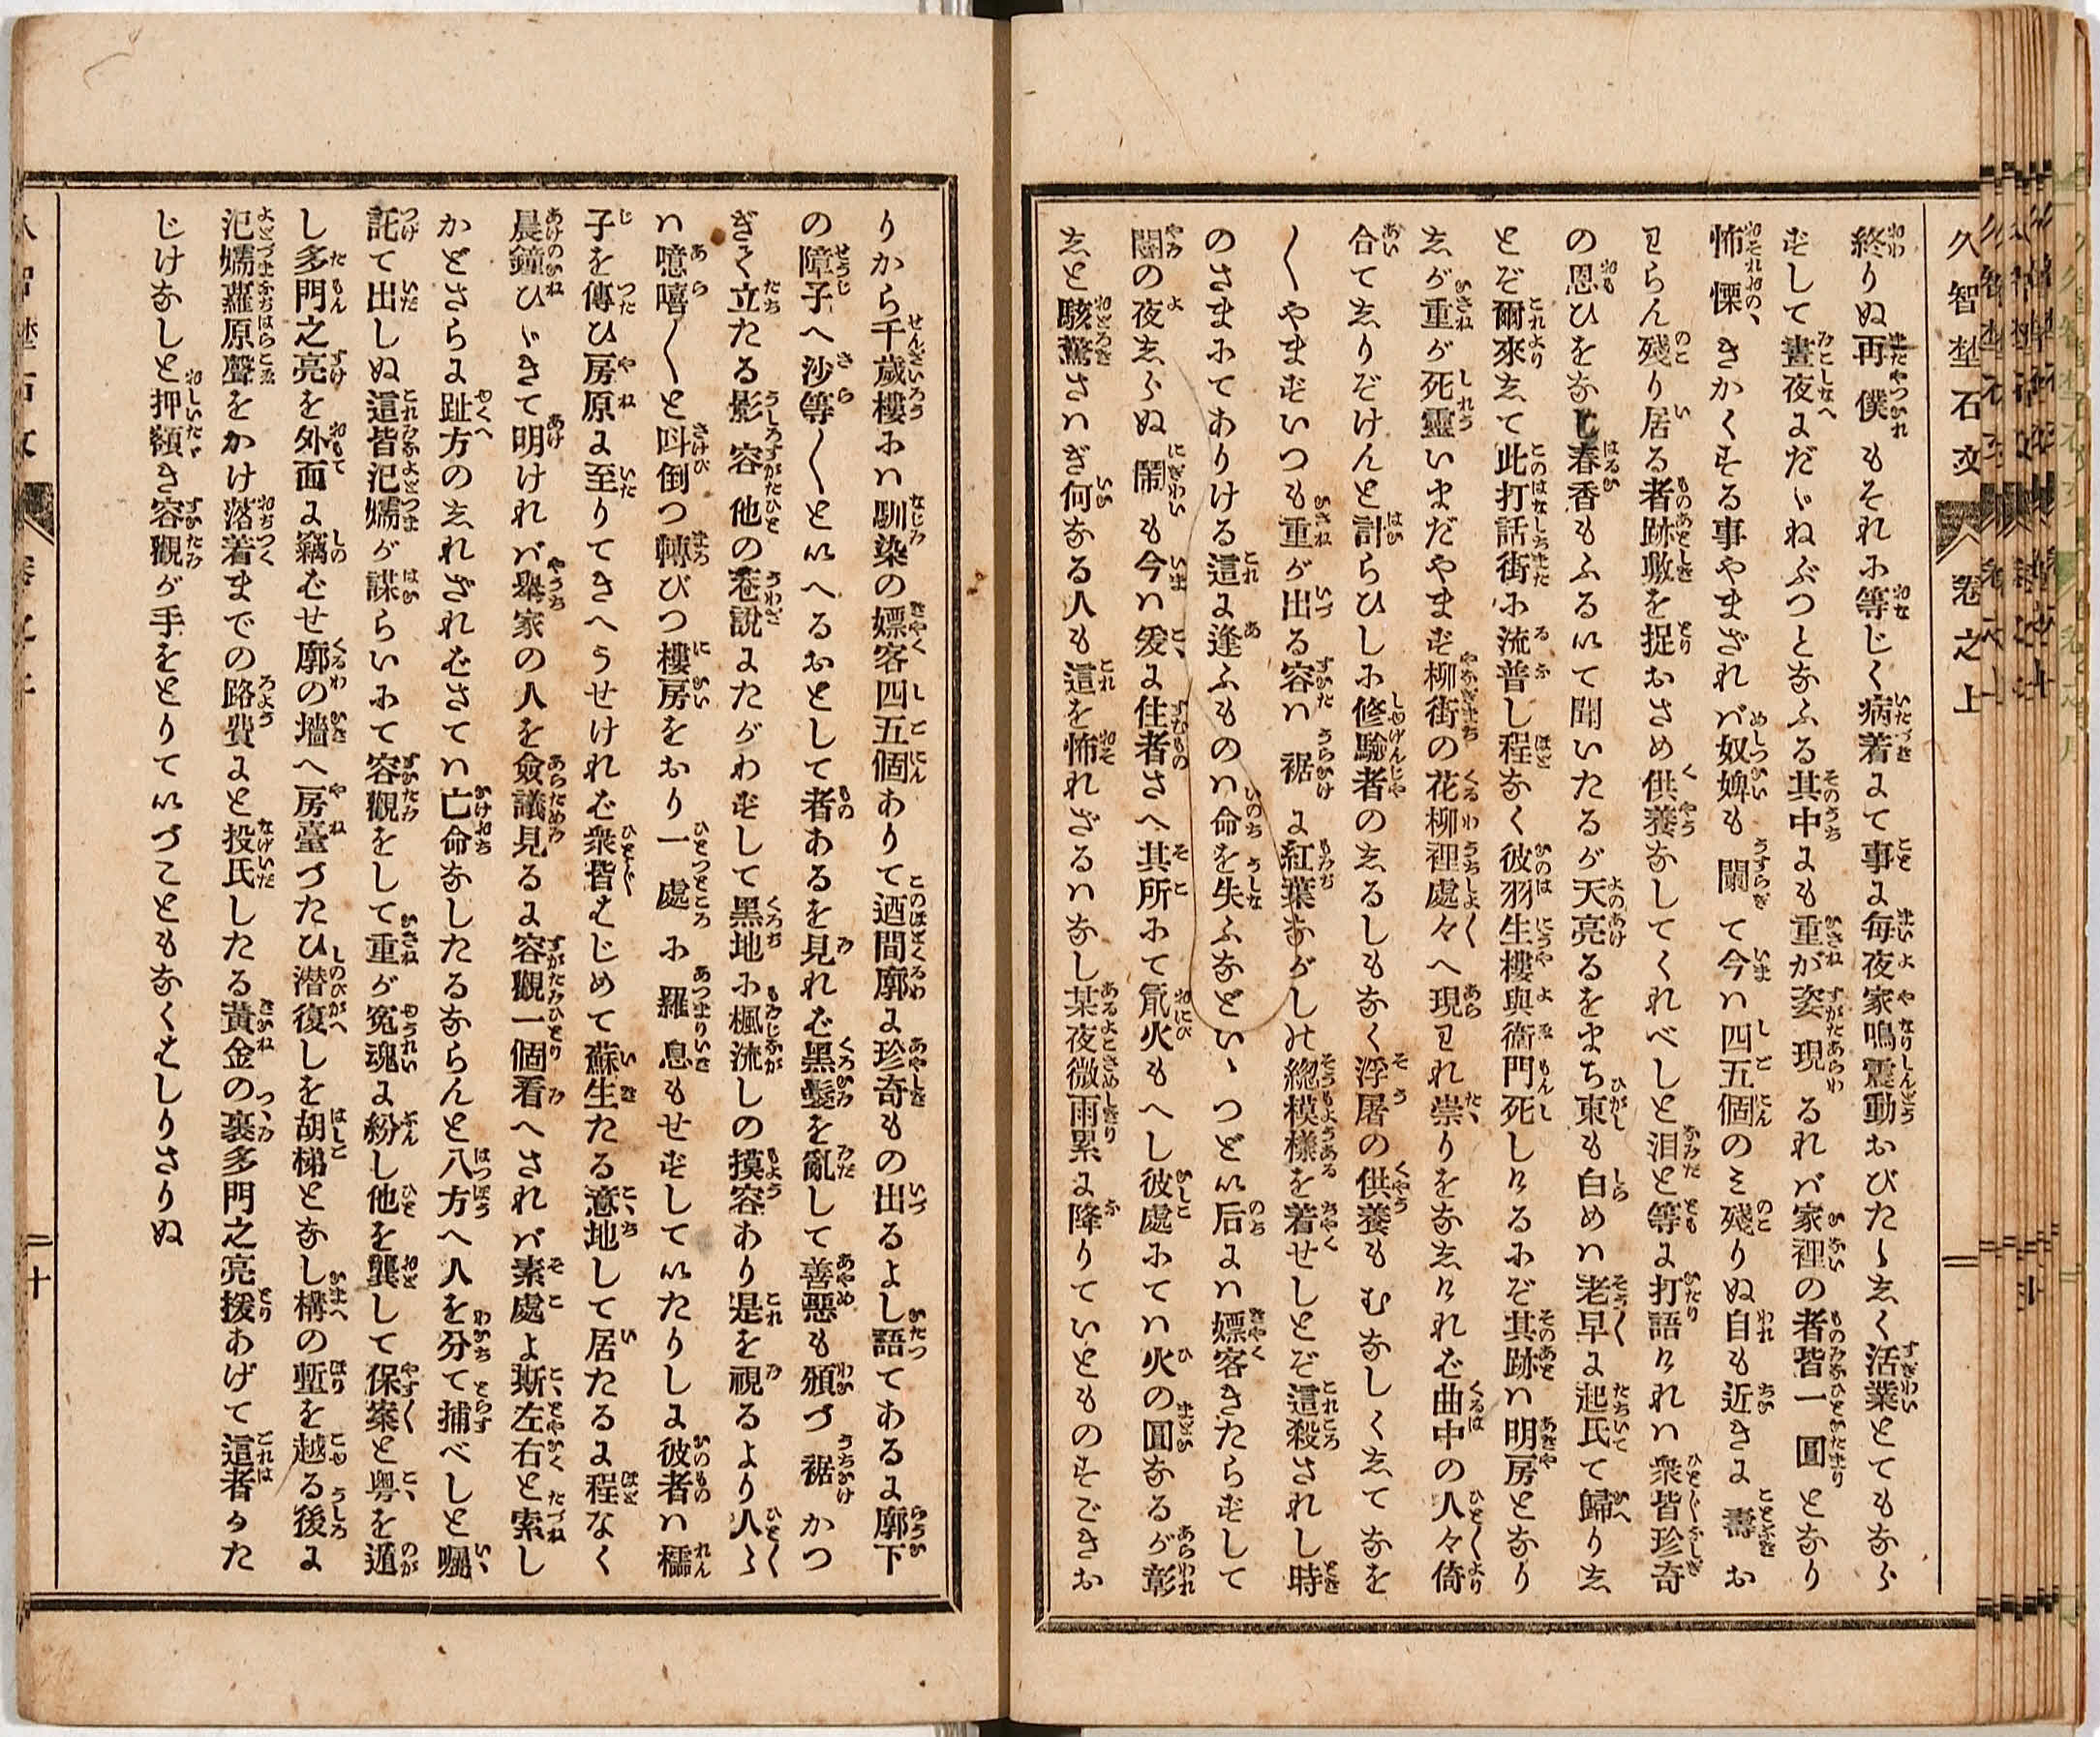 久智埜石文 卷之上
終りぬ再僕もそれに等じく病着にて事に毎夜家鳴震動おびたゝしく活業とてもならず
ずして晝夜にだゞねぶつとなふる其中にも重が姿現るれバ家裡の者皆一圓となり
怖慄きかくする事やまざれバ奴婢も闌て今ハ四五個のミ殘りぬ自も近きに壽お
わらん殘り居る者跡敷を捉おさめ供養なしてくれべしと泪と等に打語けれハ衆皆珍奇
の思ひをなし春香もふるいて聞いたるが天亮るをまち東も白めハ老早に起氐て歸りし
とぞ爾來して此打話街に流普し程なく彼羽生樓與衞門死しけるにぞ其跡ハ明房となり
しが重が死靈いまだやまず柳街の花柳裡處々へ現われ祟りをなしければ曲中の人々倚
合てしりぞけんと計らひしに修驗者のしるしもなく浮屠の供養もむなしくしてなを
〱やまずいつも重が出る容ハ裾に紅葉ながしの總模樣を着せしとぞ這殺されし時
のさまにてありける這に逢ふものハ命を失ふなどいゝつどい后にハ嫖客きたらずして
闇の夜しらぬ鬧も今ハ爰に住者さへ其所にて氚火もへし彼處にてハ火の圓なるが彰
しと駭驚さハぎ何なる人も這を怖れざるハなし某夜微雨累に降りていとものすごきお
りから千歲樓にハ馴染の嫖客四五個ありて迺間廓に珍奇もの出るよし語てあるに廓下
の障子へ沙等〱といへるおとして者あるを見れば黑髮を亂して善惡も頒づ裾かつ
ぎて立たる影容他の巷說にたがわずして黑地に楓流しの摸容あり是を視るより人〻
ハ噫嘻〱と呌倒つ轉びつ樓房をおり一處に羅息もせずしていたりしに彼者ハ櫺
子を傳ひ房原に至りてきへうせければ衆皆はじめて蘇生たる意地して居たるに程なく
晨鐘ひゞきて明けれバ擧家の人を僉議見るに容觀一個看へざれバ素處よ斯左右と索し
かどさらに趾方のしれざればさてハ亡命なしたるならんと八方へ人を分て捕べしと囑
託て出しぬ這皆氾嬬が謀らいにて容觀をして重が寃魂に紛し他を龔して保案と粤を遁
し多門之亮を外面に竊ばせ廓の墻へ房臺づたひ潜復しを胡梯となし構の塹を越る後に
氾嬬蘿原聲をかけ落着までの路費にと投氐したる黃金の裹多門之亮援あげて這者かた
じけなしと押額き容觀が手をとりていづこともなくはしりさりぬ
十